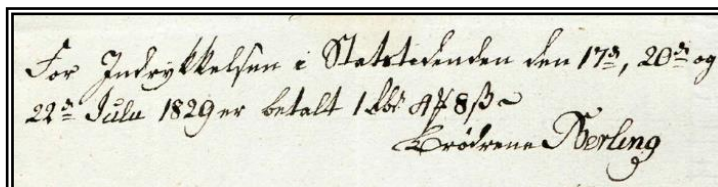 For Indrykkelsen i Statstidenden den 17de, 20de og
22de Julii 1829 er betalt 1 Rbd 4 ꟿ 8 β ~
Brødrene Berling